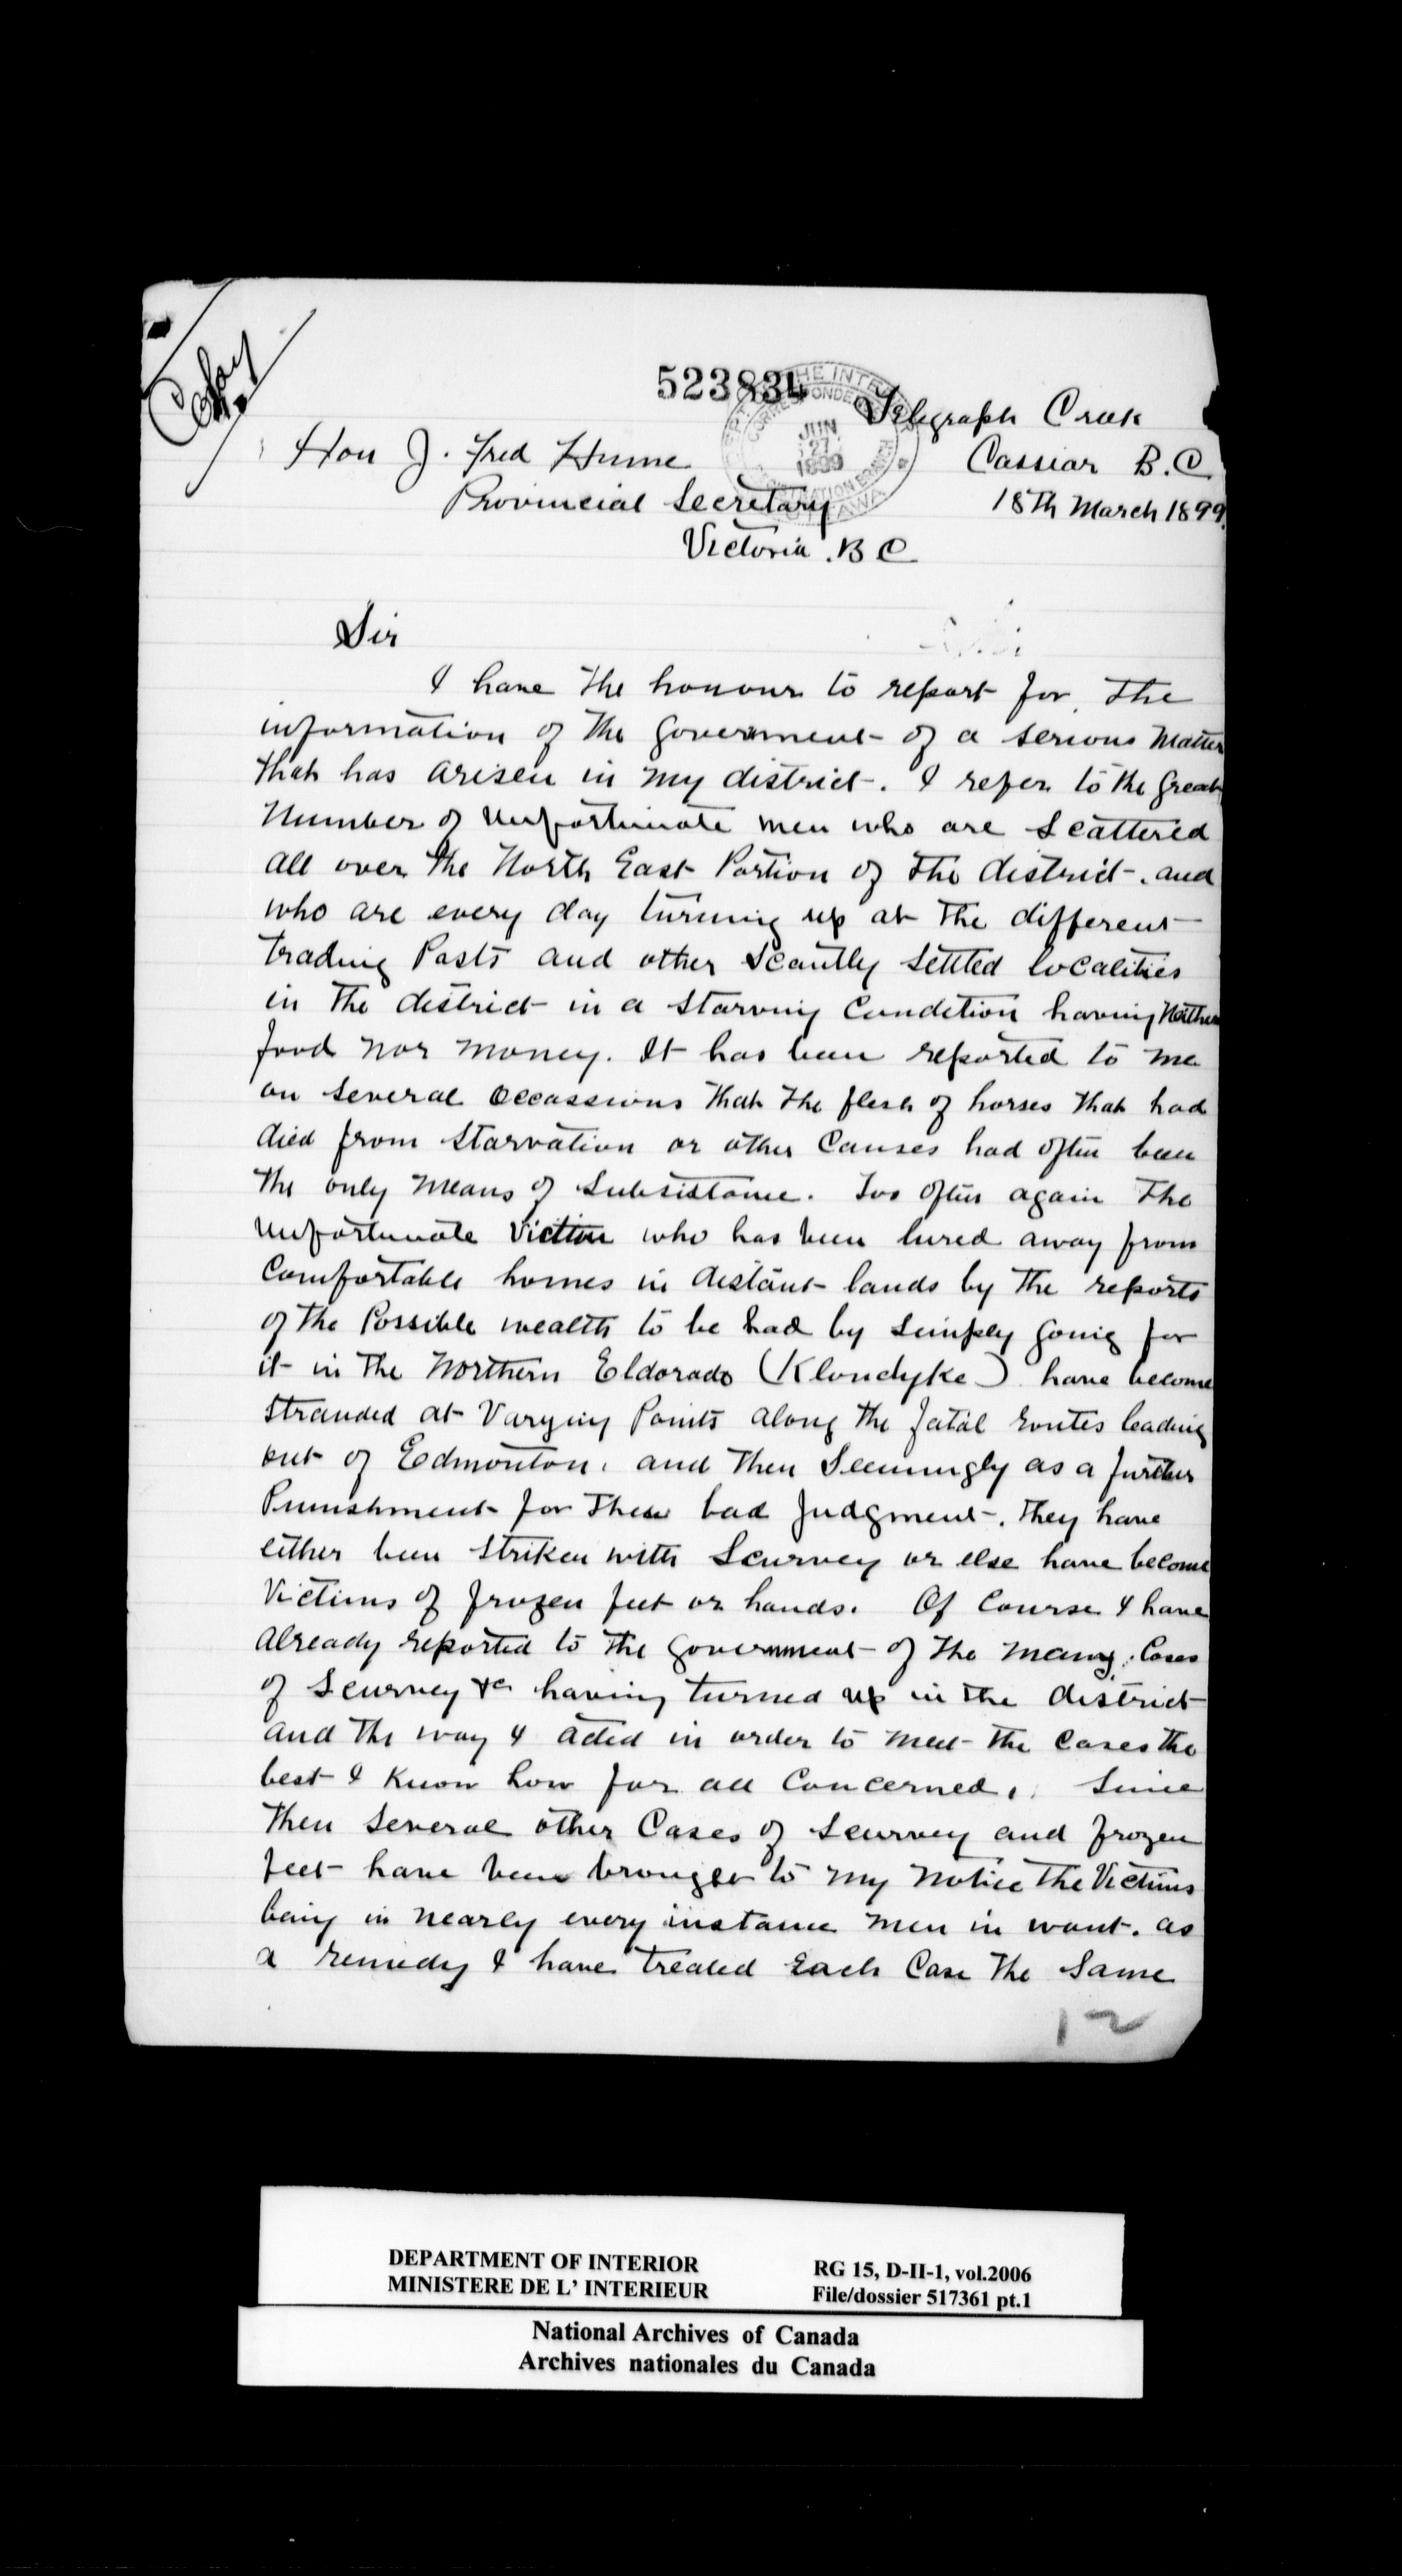 Copy
523834
DEPT. OF THE INTERIOR
CORRESPONDENCE
JUN
27
1899
REGISTRATION BRANCH
OTTAWA
Telegraph Creek
Hon J. Fred Hume
Cassiar B.C
Provincial Secretary
18th March 1899.
Victoria . B C
Sir
I have the honour to report for the
information of the Government of a serious Matter
that has arisen in my district. I refer to the great
Number of unfortunate men who are scattered
all over the North East Portion of the district, and
who are every day turning up at the different
trading Posts and other scantly settled localities
in the district in a starving Condition having Neither
food nor money. It has been reported to me
on several occassions that the flesh of horses that had
died from starvation or other Causes had often been
the only means of Subsistance. Too often again the
unfortunate Victim who has been lured away from
Comfortable homes in distant lands by the reports
of the Possible wealth to be had by simply going for
it in the Northern Eldorado (Klondyke) have become
stranded at Varying Points along the fatal routes leading
out of Edmonton, and then Seemingly as a further
Punishment for their bad Judgment, they have
either been striken with Scurvey or else have become
Victims of frozen feet or hands. Of Course I have
already reported to the Government of the many Cases
of Scurvey &c having turned up in the district
and the way I acted in order to meet the Cases the
best I know how for all Concerned, Since
then several other Cases of scurvey and frozen
feet have been brought to my notice the Victims
being in nearly every instance men in want. as
a remedy I have treated Each Case the Same
12
DEPARTMENT OF INTERIOR
MINISTERE DE L' INTERIEUR
RG 15, D-II-1, vol.2006
File/dossier 517361 pt.1
National Archives of Canada
Archives nationales du Canada